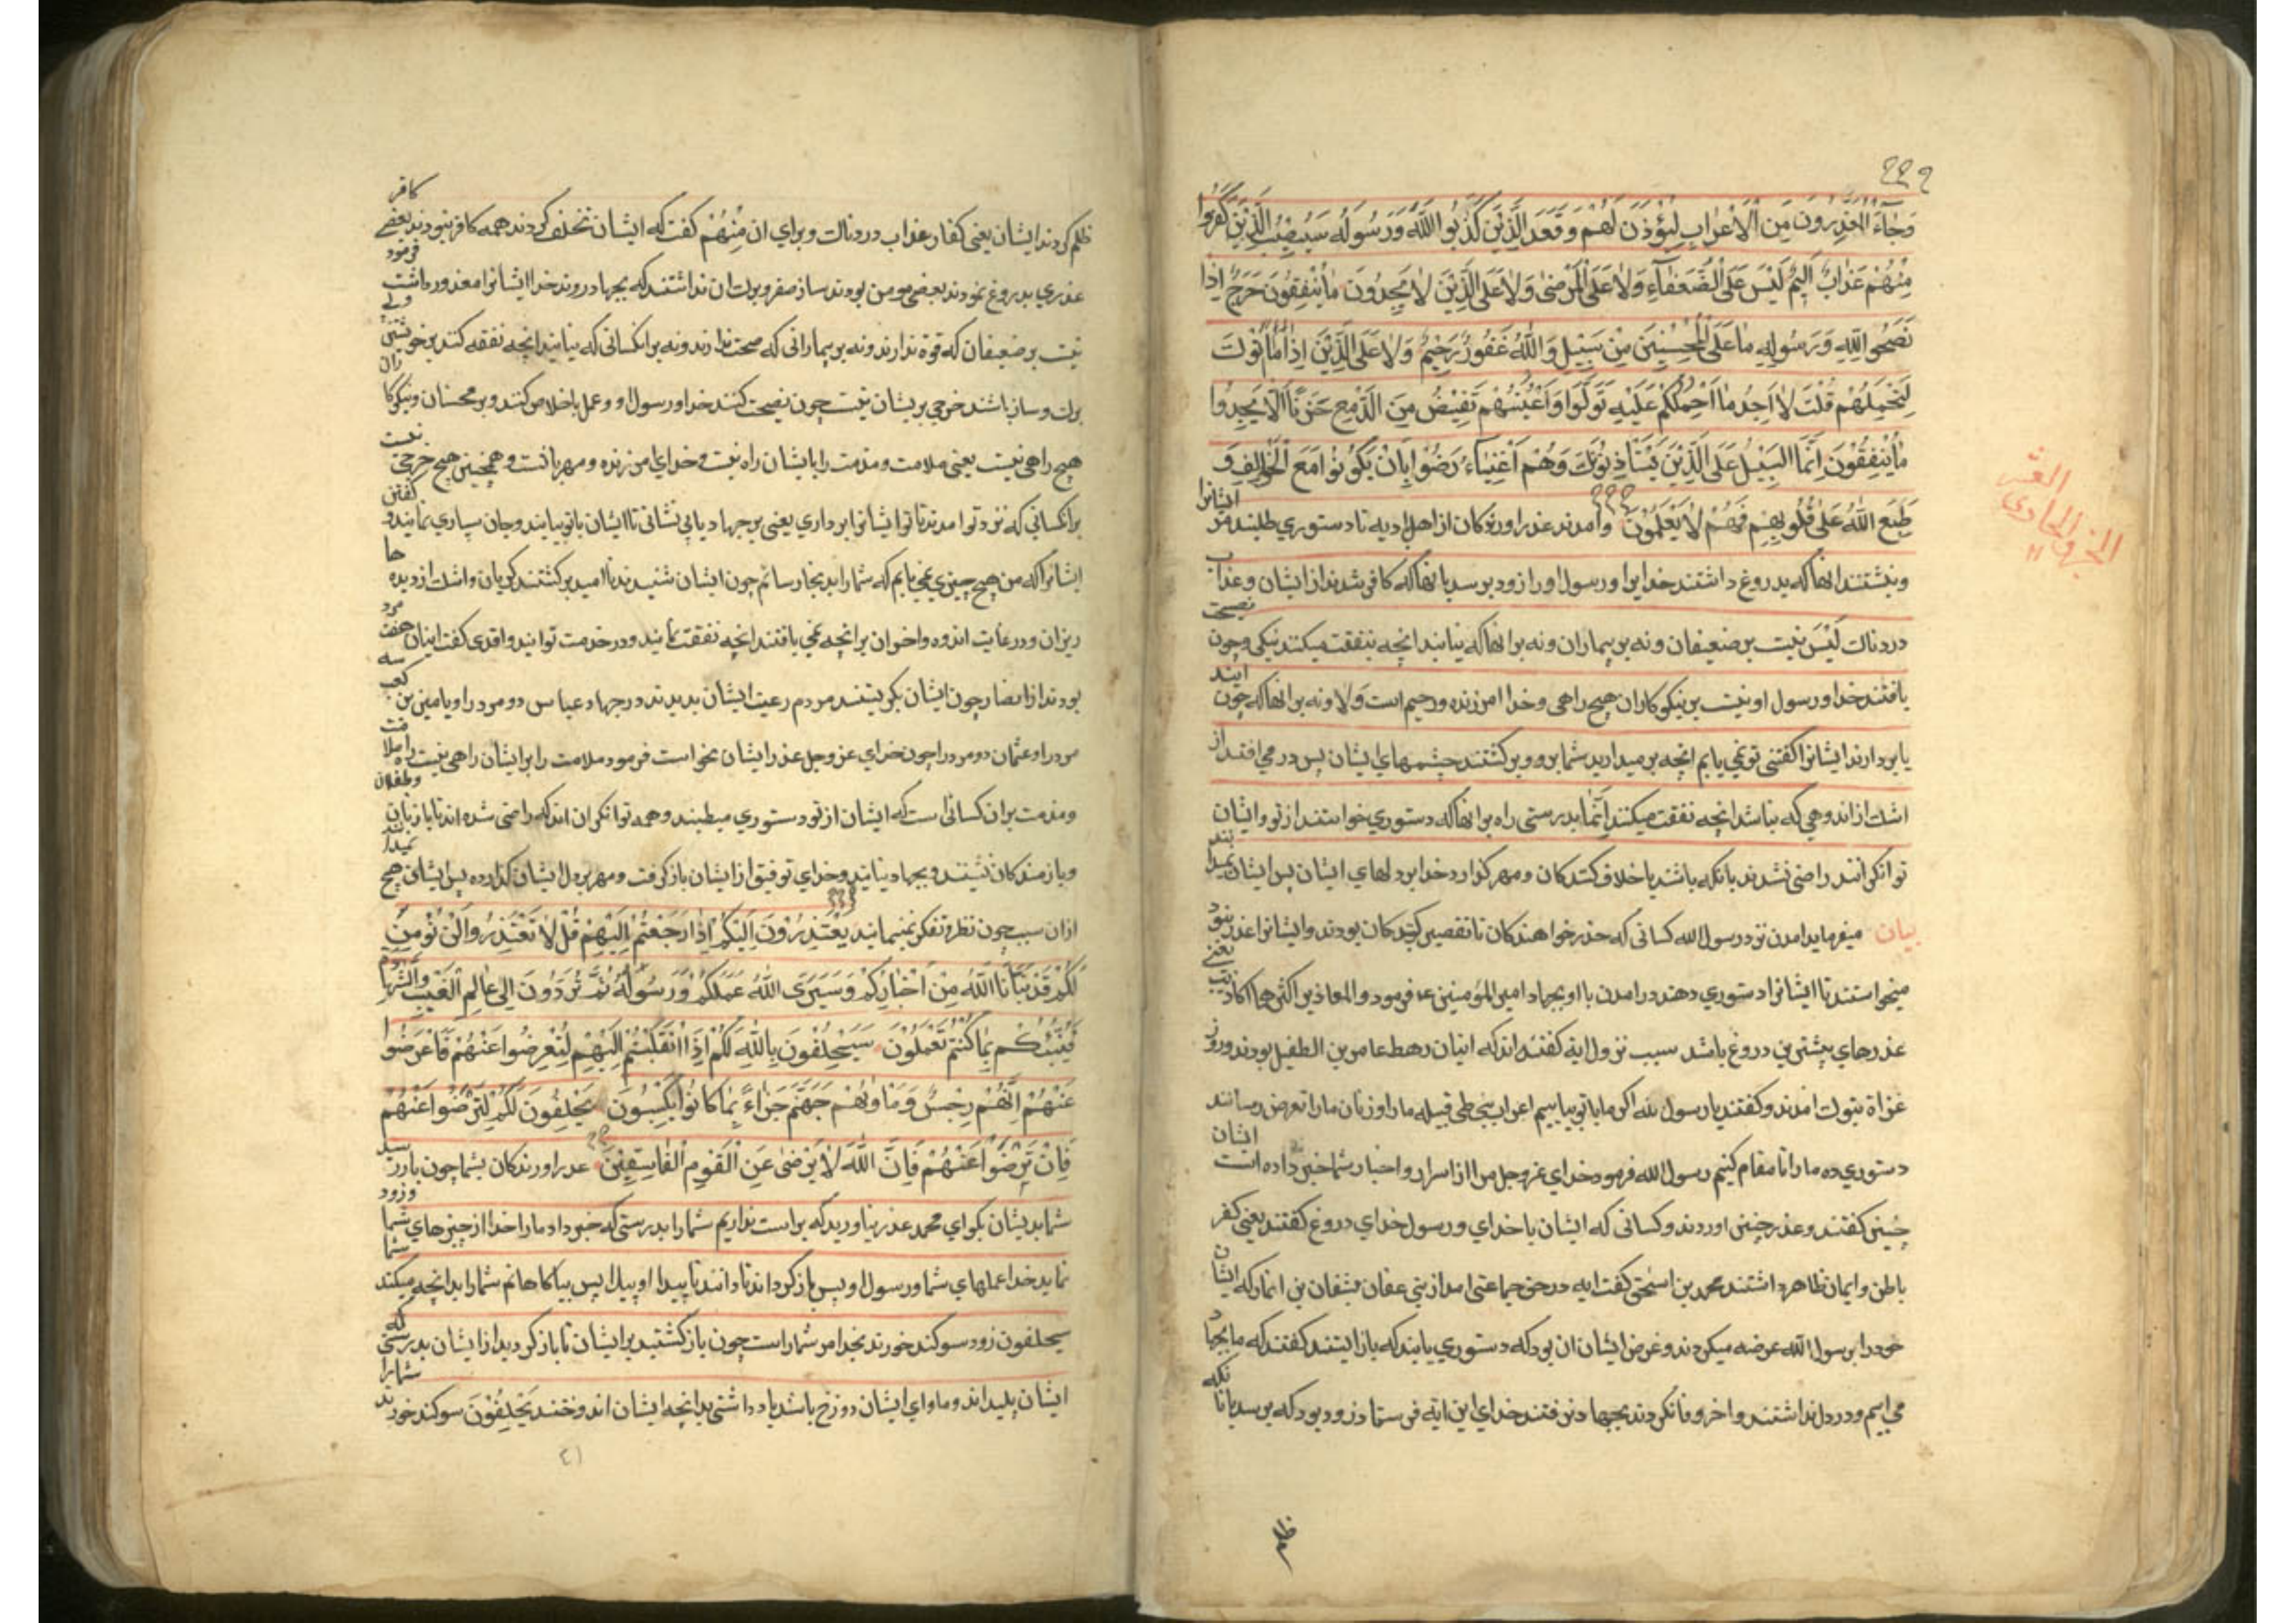 وَجَاءَ الْمُعَذِّرُونَ مِنَ الْأَعْرَابِ لِيُؤْذَنَ لَهُمْ وَقَعَدَ الَّذِينَ كَذَبُوا اللَّهَ وَرَسُولَهُ سَيُصِيبُ الَّذِينَ كَفَرُوا
مِنْهُمْ عَذَابٌ أَلِيمٌ لَيْسَ عَلَى الضُّعَفَاءِ وَلَا عَلَى الْمَرْضَى وَلَا عَلَى الَّذِينَ لَا يَجِدُونَ مَا يُنْفِقُونَ حَرَجٌ إِذَا
نَصَحُوا لِلَّهِ وَرَسُولِهِ مَا عَلَى الْمُحْسِنِينَ مِنْ سَبِيلٍ وَاللَّهُ غَفُورٌ رَحِيمٌ وَلَا عَلَى الَّذِينَ إِذَا مَا أَتَوْكَ
لِتَحْمِلَهُمْ قُلْتَ لَا أَجِدُ مَا أَحْمِلُكُمْ عَلَيْهِ تَوَلَّوْا وَأَعْيُنُهُمْ تَفِيضُ مِنَ الدَّمْعِ حَزَنًا أَلَّا يَجِدُوا
مَا يُنْفِقُونَ إِنَّمَا السَّبِيلُ عَلَى الَّذِينَ يَسْتَأْذِنُونَكَ وَهُمْ أَغْنِيَاءُ رَضُوا بِأَنْ يَكُونُوا مَعَ الْخَوَالِفِ وَ
طَبَعَ اللَّهُ عَلَى قُلُوبِهِمْ فَهُمْ لَا يَعْلَمُونَ وامدند عذر اورندکان از اهل بادیه تا دستوری طلبند مر ایشانرا
وبنشتند انها که بدروغ داشتند خدایرا ورسول او را زود برسد بانها که کافر شدند از ایشان وعذاب
دردناک لَیْسَ نیست بر ضعیفان ونه بر بیماران ونه بر انها که نیابند انچه بنفقت میکنند نیکی وچون نصیحت
یافتند خدا ورسول او نیست بر نیکوکاران هیچ راهی وخدا امرزنده ورحیم است وَلا ونه بر انها که چون ایند
یا بردارند ایشانرا کفتی تو نمی یابم انچه بر میدارید شما برو وبرکشتند چشمهای ایشان پس در می افتد از
اشک از اندوهی که نباشد انچه نفقت میکنند اِنَّمَا بدرستی راه بر انها که دستوری خواستند از تو وایشان
توانکرانند راضی شدند بانکه باشند باخلاف کنندکان ومهر کزارد خدا بر دلهای ایشان پس ایشان نمیدانند
بیان میفرماید امدن نزد رسول الله کسانی که عذر خواهندکان با تقصیر کنندکان بودند وایشانرا عذر نبود
میخواستند تا ایشانرا دستوری دهند در امدن با او بجهاد امیر المؤمنین ع فرمود والمعاذیر اکثرها اکاذیب یعنی
عذرهای بیشترین دروغ باشد سبب نزول ایة کفته اند که اینان رهط عامر بن الطفیل بودند وروز
غزاة بتوک امدند وکفتند یا رسول الله اکر ما با تو بیاییم اعراب بنی طی قبیله ما را وزنان ما را تعرض رسانند
دستوری ده ما را تا مقام کنیم رسول الله فرمود خدای عز وجل مرا از اسرار واخبار شما خبر داده است ایشان
چنین کفتند وعذر چنین اوردند وکسانی که ایشان با خدای ورسول خدای دروغ کفتند یعنی کفر
باطن وایمان ظاهر داشتند محمد بن اسحق کفت ایه در حق جماعتی امد از بنی عفان
خود را بر رسول الله عرضه میکردند وغرض ایشان ان بود که دستوری یابند که بازایستند کفتند که ما بجهاد
می اییم ودر دل نداشتند واخر وفا نکردند بجهاد نرفتند خدای این ایة فرستاد زود بود که برسد بانانکه
العشر
الجزو الحادی
۱۱
ظلم کردند ایشان یعنی کفار عذاب دردناک وبرای ان مِنْهُمْ کفت که ایشان تخلف کردند همه کافر نبودند بعضی کافر
عذری بدروغ نمودند بعضی مومن بودند ساز سفر وبرک ان نداشتند که بجهاد روند خدا ایشانرا معذور داشت فرمود
نیست بر ضعیفان که قوة ندارند ونه بر بیمارانی که صحت ندارند ونه بر انکسانی که نیابند انچه نفقه کنند بر خویشتن
برک وساز باشند حرجی بریشان نیست چون نصیحت کنند خدا ورسول او وعمل باخلاص کنند وبر محسنان ونیکوکاران
هیچ راهی نیست یعنی ملامت ومذمت را بایشان راه نیست وخدای امرزنده ومهربانست وهمچنین هیچ حرجی نیست
بر انکسانی که نزد تو امدند تا تو ایشانرا برداری یعنی بر جهاد یاری نشانی تا ایشان با تو بیایند وجان سپاری نمایند و کفتن
ایشانرا که من هیچ چیزی نمی یابم که شما را بدانجا رسانم چون ایشان شنیدند نا امید برکشتند کریان واشک از دیدها
ریزان ودر غایت اندوه واخوان بر انچه نمی یافتند انچه نفقت نمایند ودر خدمت تو ایند واقدی کفت اینان هفت مرد
بودند از انصار چون ایشان بکریستند مردم رعیت ایشان بدیدند در جهاد عباس دو مرد را ویامین بن کعب سه
مرد را وعثمان دو مرد را چون خدای عز وجل عذر ایشان بخواست فرمود ملامت را بر ایشان راهی نیست راه ملامت
ومذمت بر ان کسانی است که ایشان از تو دستوری میطلبند وهمه توانکران اند که راضی شده اند تا با زنان وطفلان
وبازمندکان نشینند وبجهاد نیایند وخدای توفیق از ایشان بازکرفت ومهر بر دل ایشان کذارده پس ایشان هیچ نمیدانند
ازان سبب چون نظر وتفکر نمینمایند یَعْتَذِرُونَ إِلَيْكُمْ إِذَا رَجَعْتُمْ إِلَيْهِمْ قُلْ لَا تَعْتَذِرُوا لَنْ نُؤْمِنَ
لَكُمْ قَدْ نَبَّأَنَا اللَّهُ مِنْ أَخْبَارِكُمْ وَسَيَرَى اللَّهُ عَمَلَكُمْ وَرَسُولُهُ ثُمَّ تُرَدُّونَ إِلَى عَالِمِ الْغَيْبِ وَالشَّهَادَةِ
فَيُنَبِّئُكُمْ بِمَا كُنْتُمْ تَعْمَلُونَ سَيَحْلِفُونَ بِاللَّهِ لَكُمْ إِذَا انْقَلَبْتُمْ إِلَيْهِمْ لِتُعْرِضُوا عَنْهُمْ فَأَعْرِضُوا
عَنْهُمْ إِنَّهُمْ رِجْسٌ وَمَأْوَاهُمْ جَهَنَّمُ جَزَاءً بِمَا كَانُوا يَكْسِبُونَ يَحْلِفُونَ لَكُمْ لِتَرْضَوْا عَنْهُمْ
فَإِنْ تَرْضَوْا عَنْهُمْ فَإِنَّ اللَّهَ لَا يَرْضَى عَنِ الْقَوْمِ الْفَاسِقِينَ عذر اورندکان بشما چون باز رسید
شما بدیشان بکو ای محمد عذر نیاورید که براست نداریم شما را بدرستی که خبر داد ما را خدا از چیزهای شما وزود
نماید خدا عملهای شما ورسول او پس بازکرداند تا دانند ناپیدا وپیدا پس بیاکاهانم شما را بدانچه میکنند
سیحلفون زود سوکند خورند بخدا مر شما راست چون بازکشتید بر ایشان تا بازکردید از ایشان بدرستی که
ایشان پلیداند وماوای ایشان دوزخ باشد پاداشتی بدانچه ایشان اندوختند یَحْلِفُونَ سوکند خورند شما را